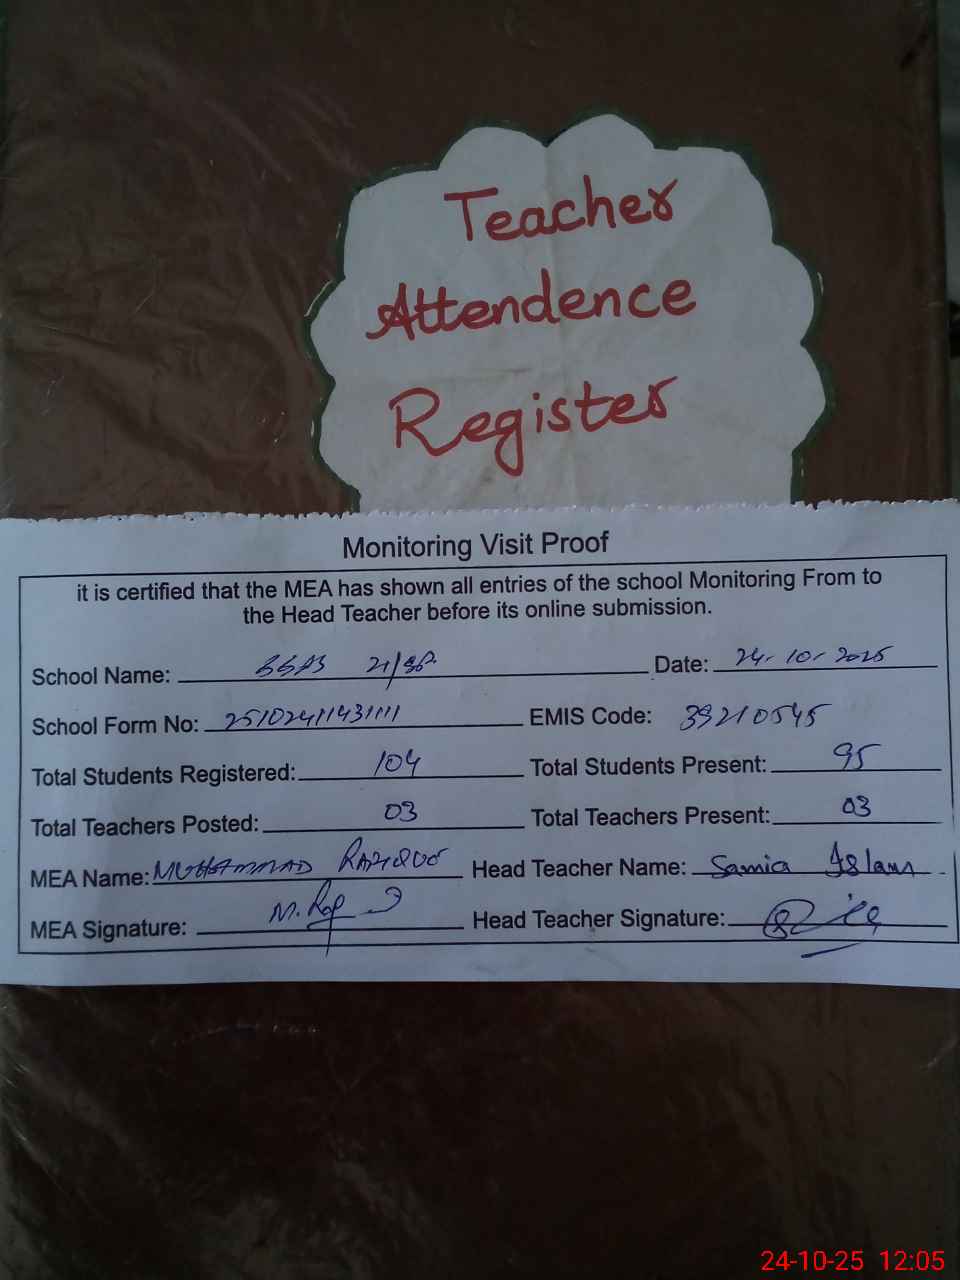 Teacher
Attendence
Register
Monitoring Visit Proof
it is certified that the MEA has shown all entries of the school Monitoring From to
the Head Teacher before its online submission.
School Name: Date: 24-10-2025
School Form No: 25102411431111 EMIS Code: 39210545
Total Students Registered: 104 Total Students Present: 95
Total Teachers Posted: 03 Total Teachers Present: 03
MEA Name: MUHAMMAD Head Teacher Name: Samia Islam
MEA Signature: Head Teacher Signature:
24-10-25 12:05